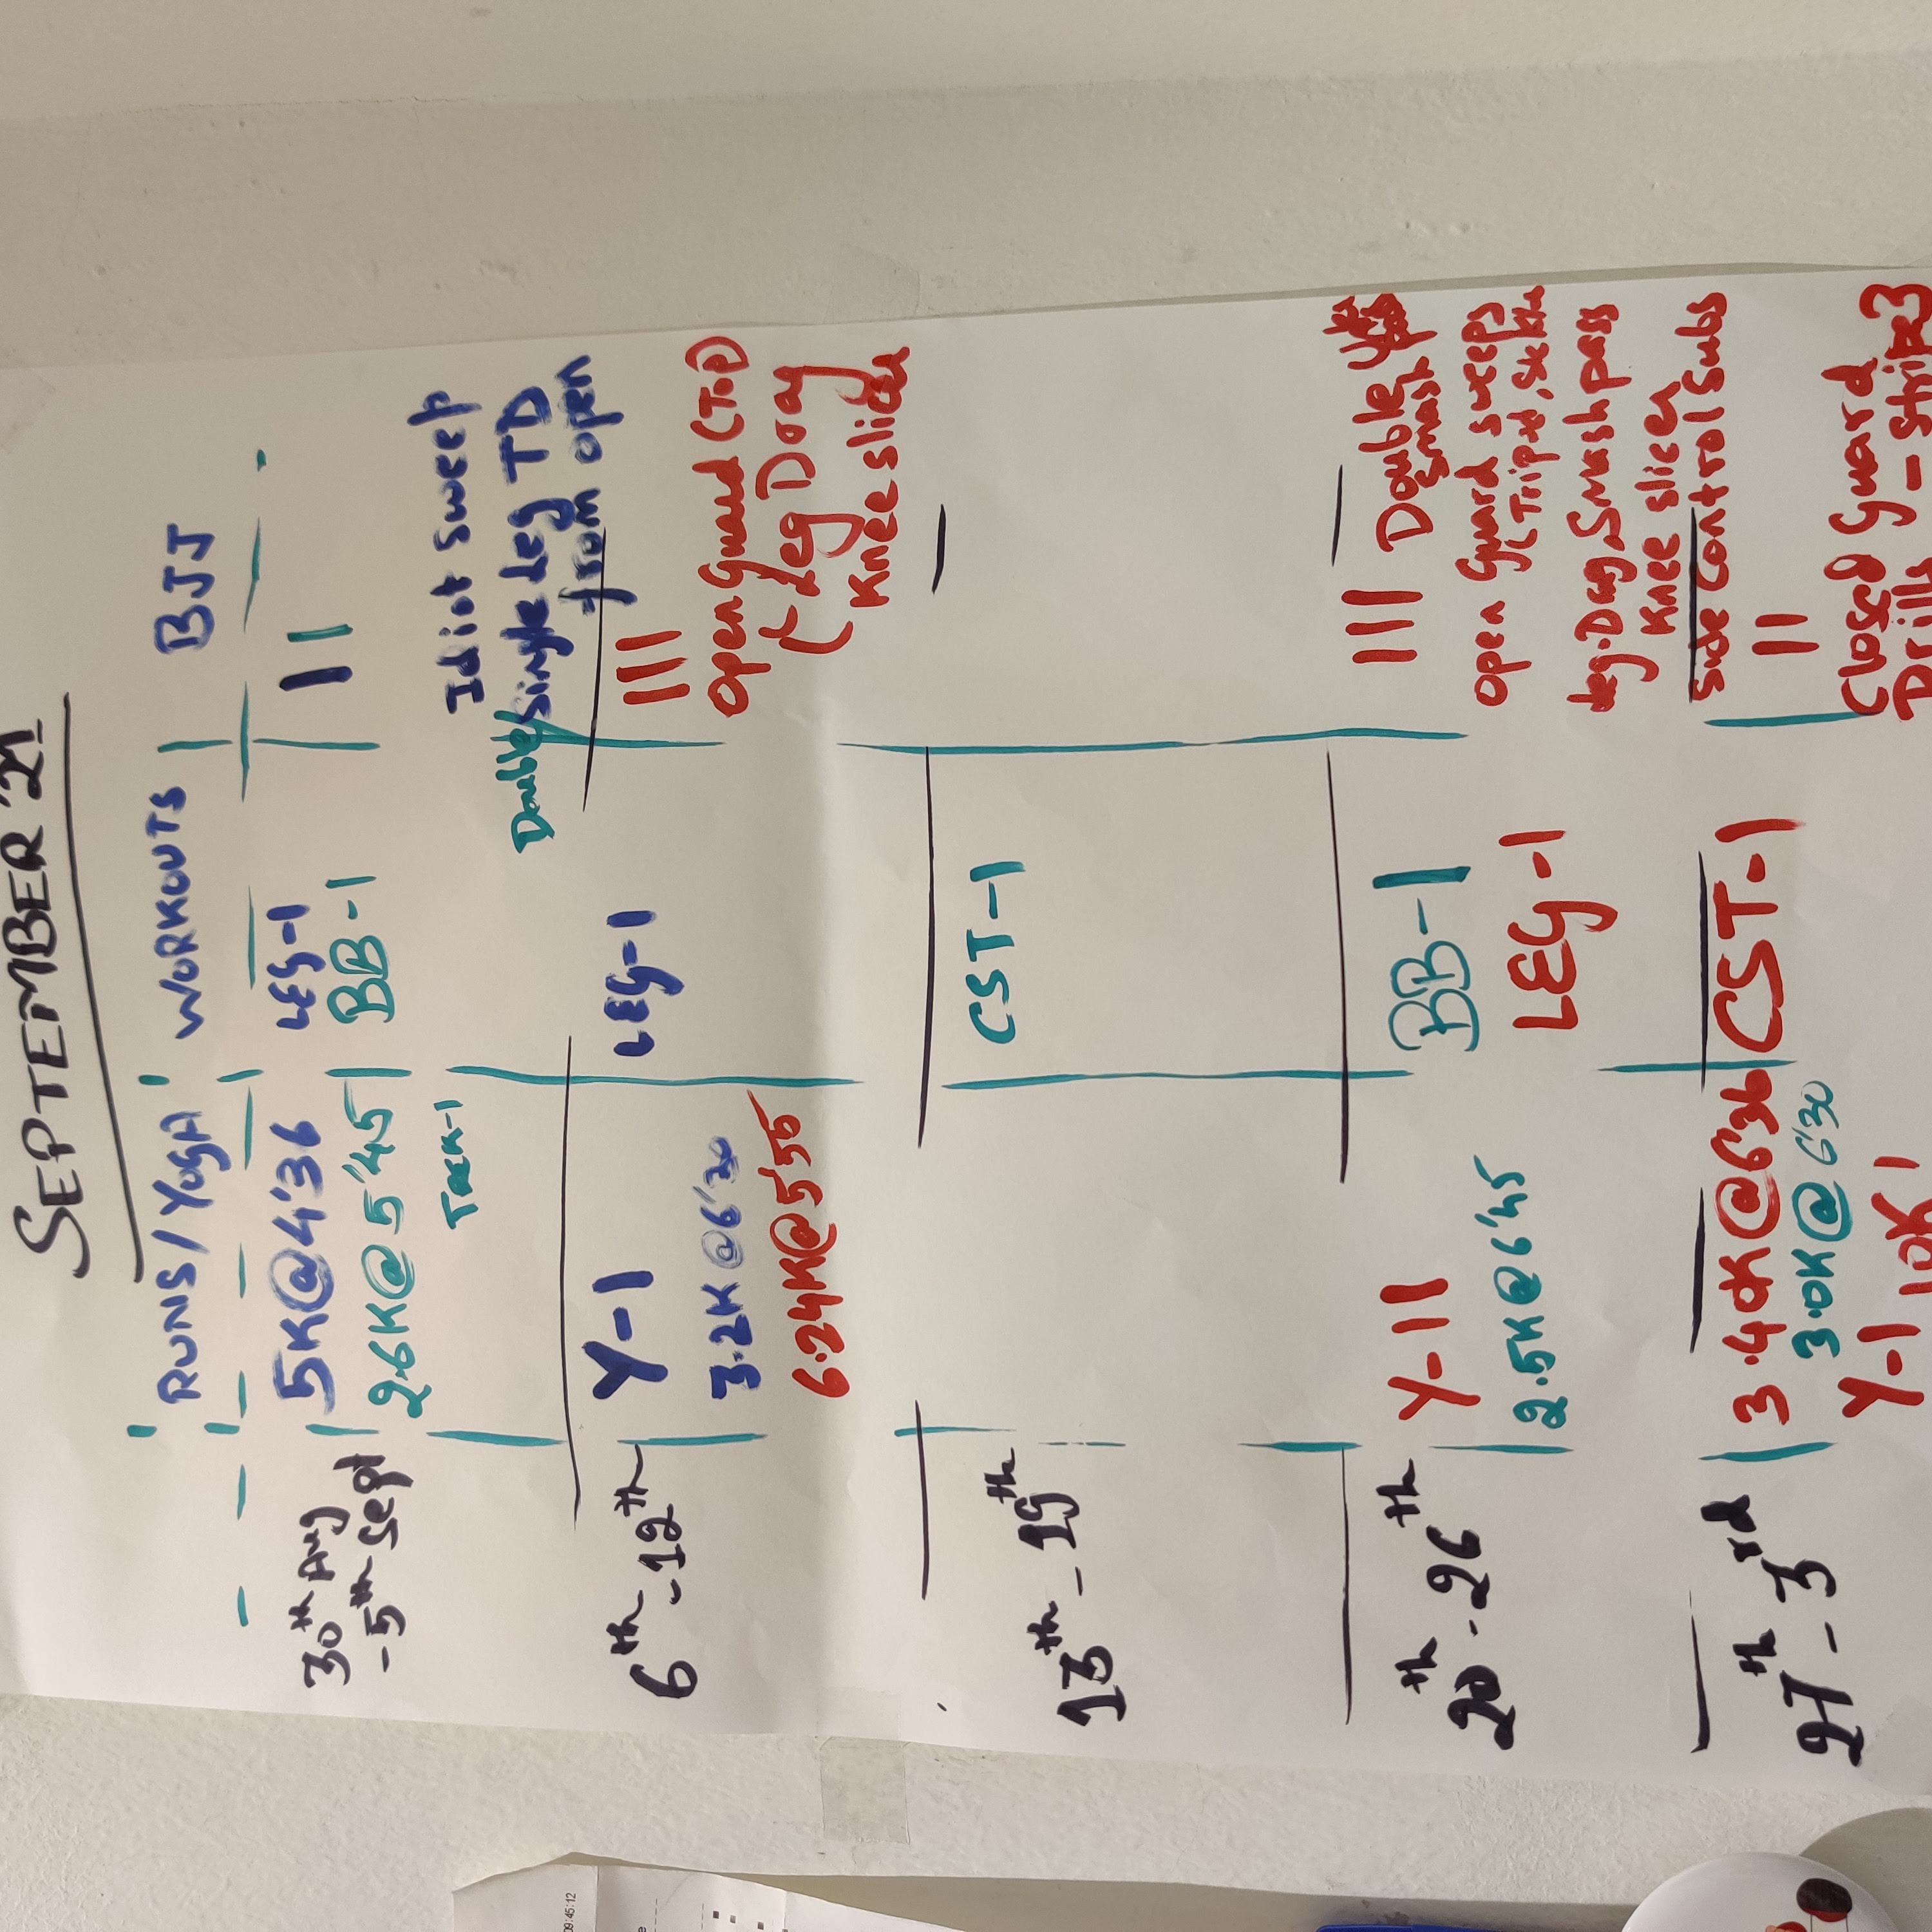 SEPTEMBER '21
RUNS/YOGA WORKOUTS BJJ
30th Aug
-5th Sept
5K@4'36
2.6K@5'45
TREK-1
LEG-1
BB-1
II
Idiot Sweep
Double/Single Leg TD
from open
6th-12th
Y-1
3.2K@6'30
6.24K@5'55
LEG-1
III
Open Guard (Top)
(Leg Drag
Knee slicer
13th-19th
CST-1
20th-26th
Y-11
2.5K@6'45
BB-1
LEG-1
III Double Under
Smash pass
Open Guard sweeps
(Tripod,
Leg.Drag, Smash pass
Knee slicer
Side Control Subs
27th-3rd
3.40K@6'36
3.0K@6'30
Y-1 10K1
CST-1
II
Closed Guard
Drills - Stripe3
09:45:12